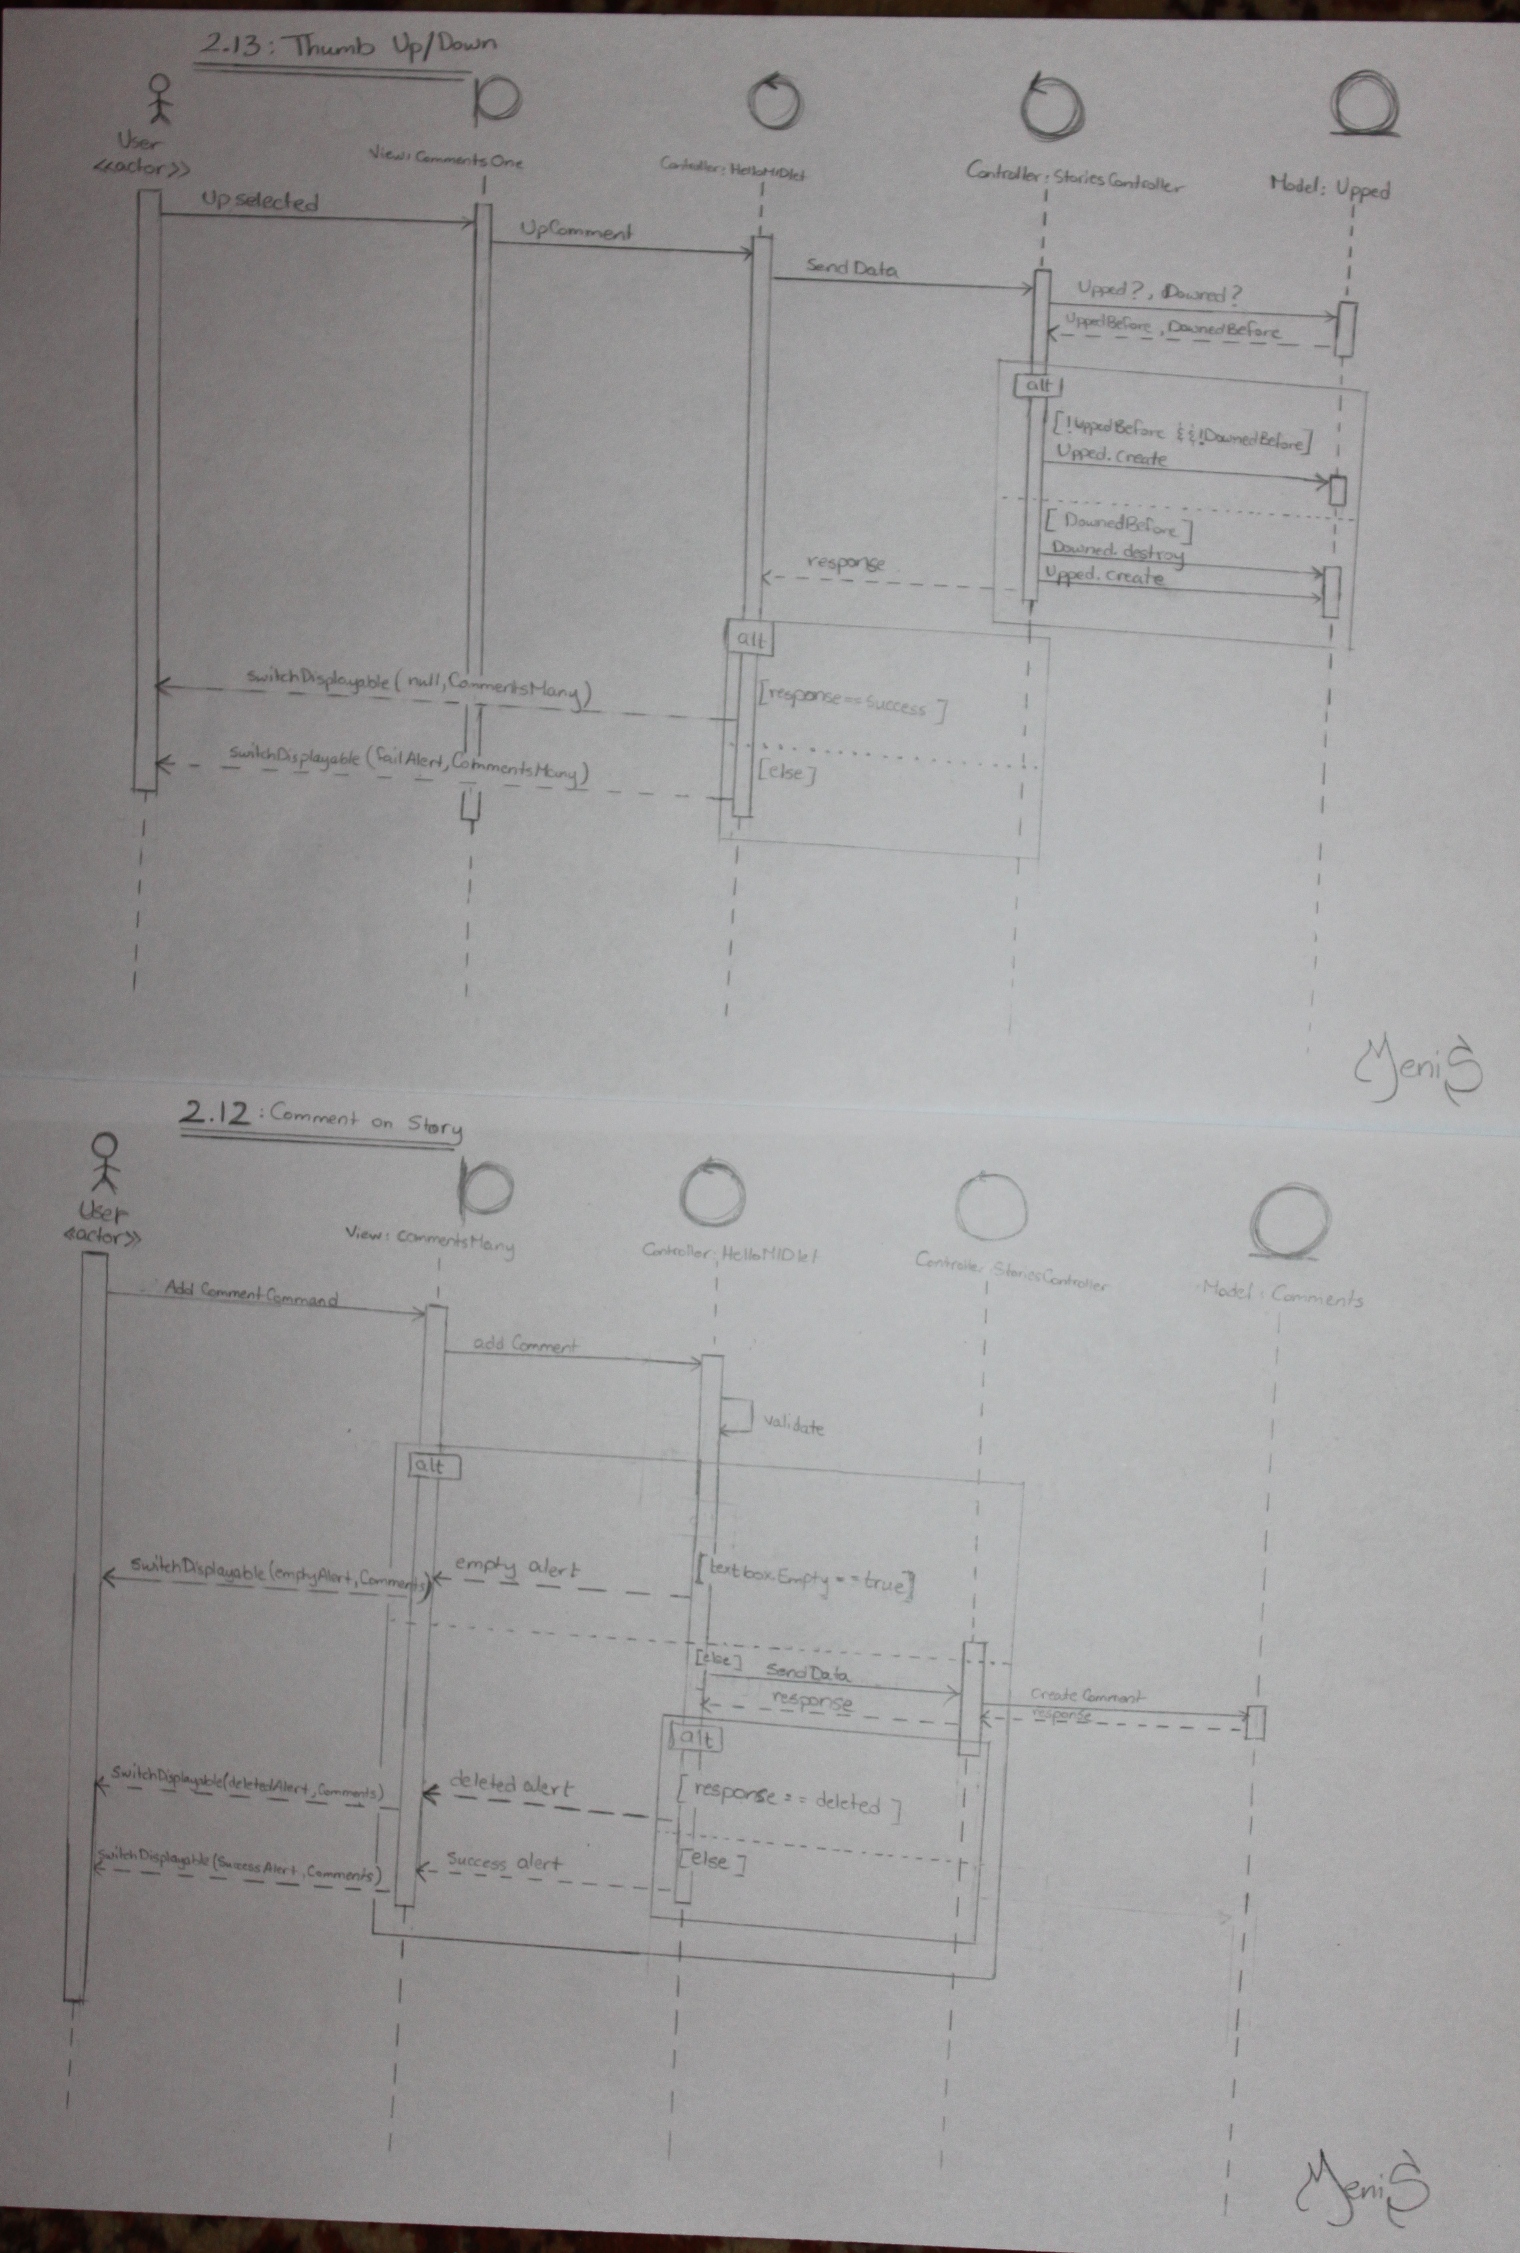 2.13: Thumb Up/Down
User
<<actor>>
View: CommentsOne
Controller: HelloMIDlet
Controller: StoriesController
Model: Upped
Up selected
UpComment
Send Data
Upped?, Downed?
UppedBefore, DownedBefore
alt
[!UppedBefore &&!DownedBefore]
Upped.create
[DownedBefore]
Downed.destroy
Upped.create
response
alt
switchDisplayable(null,CommentsMany)
[response==Success]
switchDisplayable(failAlert,CommentsMany)
[else]
MeniS
2.12: Comment on Story
User
<<actor>>
View: commentsMany
Controller: HelloMIDlet
Controller StoriesController
Model: Comments
Add CommentCommand
add Comment
validate
alt
switchDisplayable(emptyAlert,Comments)
empty alert
[textbox.Empty==true]
[else]
SendData
response
Create Comment
response
alt
switchDisplayable(deletedAlert,Comments)
deleted alert
[response == deleted]
switchDisplayable(SuccessAlert,Comments)
Success alert
[else]
MeniS